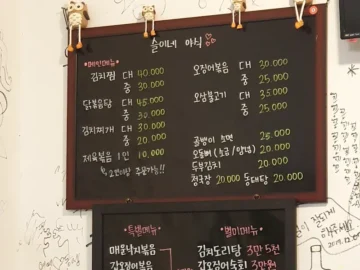 슬이네 야식
*메인메뉴*
김치찜 대 40.000
중 30.000
닭볶음탕 대 45.000
중 30.000
김치찌개 대 30.000
중 20.000
제육볶음 1인 10.000
2인이상 주문가능!!
오징어볶음 대 30.000
중 25.000
오삼불고기 대 35.000
중 25.000
골뱅이 소면 25.000
오돌뼈 (소금/양념) 20.000
두부김치 20.000
청국장 20.000 동태탕 20.000
*특별메뉴*
매물낙지볶음
갑오징어볶음
*별미메뉴*
김치도리탕 3만 5천
갑오징어숙회 3만원